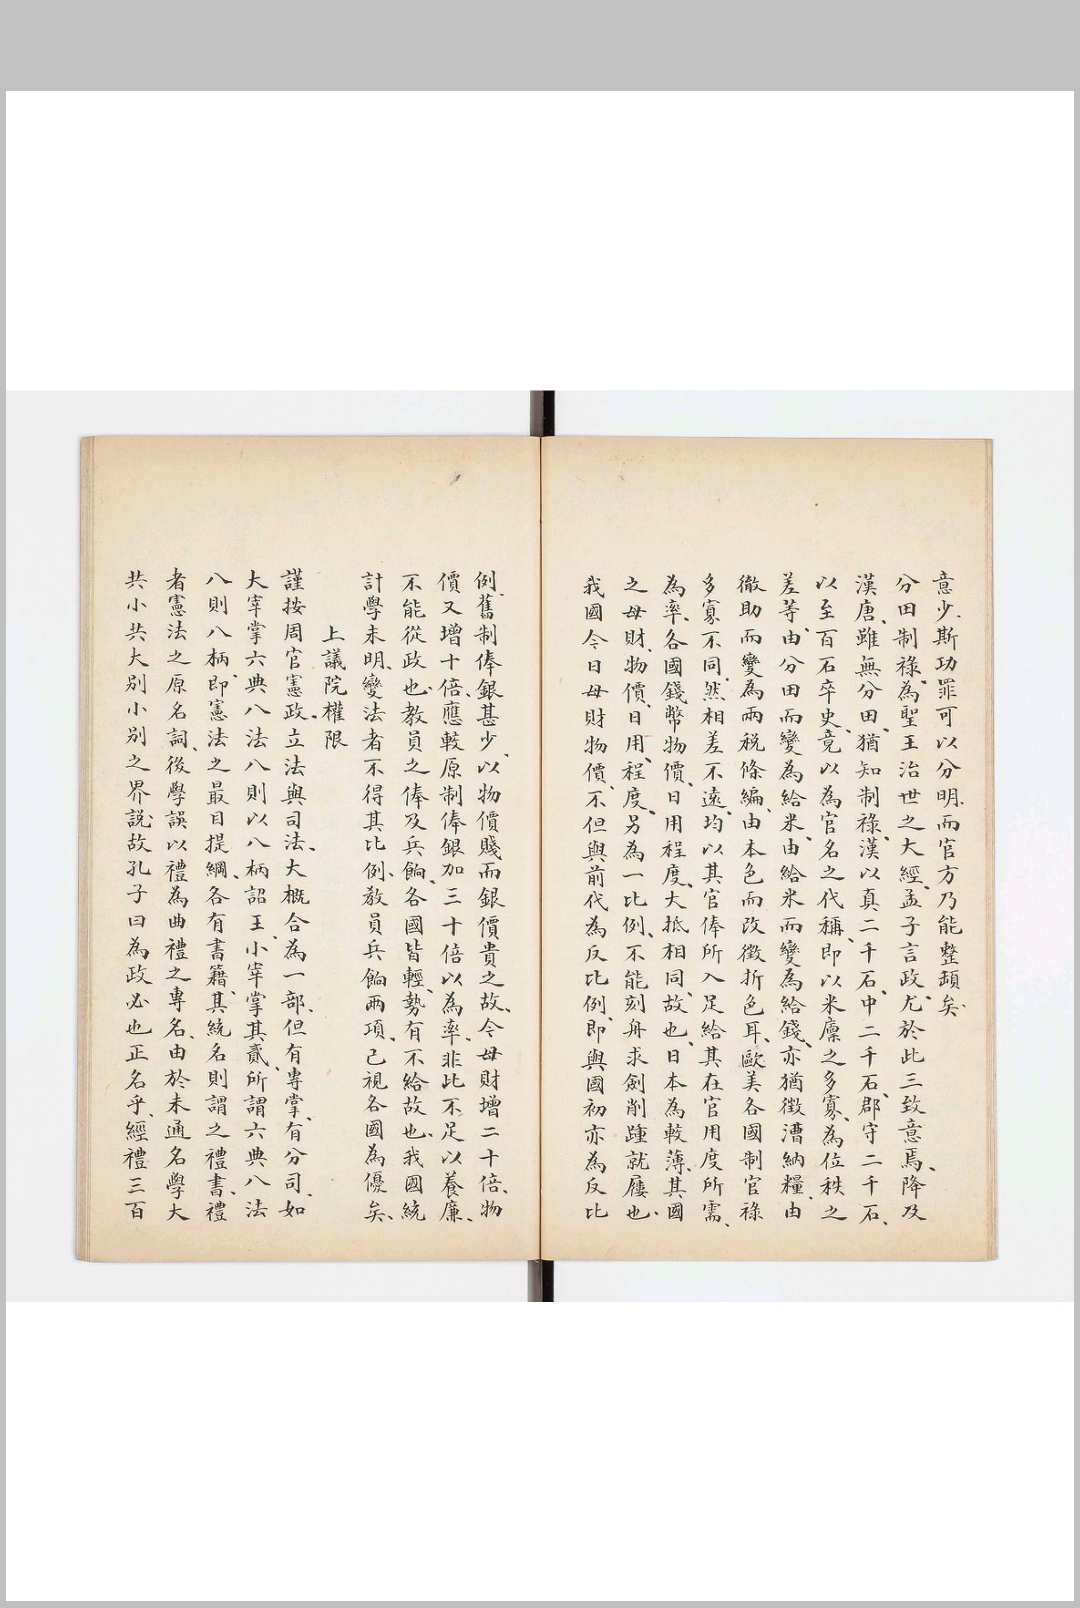 意少、斯功罪可以分明、而官方乃能整頓矣、
分田制祿、為聖王治世之大經、孟子言政、尤於此三致意焉、降及
漢唐、雖無分田、猶知制祿、漢以真二千石、中二千石、郡守二千石、
以至百石卒史、竟以為官名之代稱、即以米廩之多寡、為位秩之
差等、由分田而變為給米、由給米而變為給錢、亦猶徵漕納糧、由
徹助而變為兩税條編、由本色而改徵折色耳、歐美各國制官祿
多寡不同、然相差不遠、均以其官俸所入足給其在官用度所需、
為率、各國錢幣物價、日用程度、大抵相同故也、日本為較薄、其國
之母財、物價、日用、程度、另為一比例、不能刻舟求劍削踵就屨也、
我國今日母財物價、不但與前代為反比例、即與國初亦為反比
例、舊制俸銀甚少、以物價賤而銀價貴之故、今母財增二十倍、物
價又增十倍、應較原制俸銀加三十倍以為率、非此不足以養廉、
不能從政也、教員之俸及兵餉、各國皆輕、勢有不給故也、我國統
計學未明、變法者不得其比例、教員兵餉兩項、已視各國為優矣、
上議院權限
謹按周官憲政、立法與司法、大概合為一部、但有專掌、有分司、如
大宰掌六典八法八則以八柄詔王、小宰掌其貳、所謂六典八法
八則八柄、即憲法之最目提綱、各有書籍、其統名則謂之禮書、禮
者憲法之原名詞、後學誤以禮為曲禮之專名、由於未通名學大
共小共大別小別之界説、故孔子曰為政必也正名乎、經禮三百